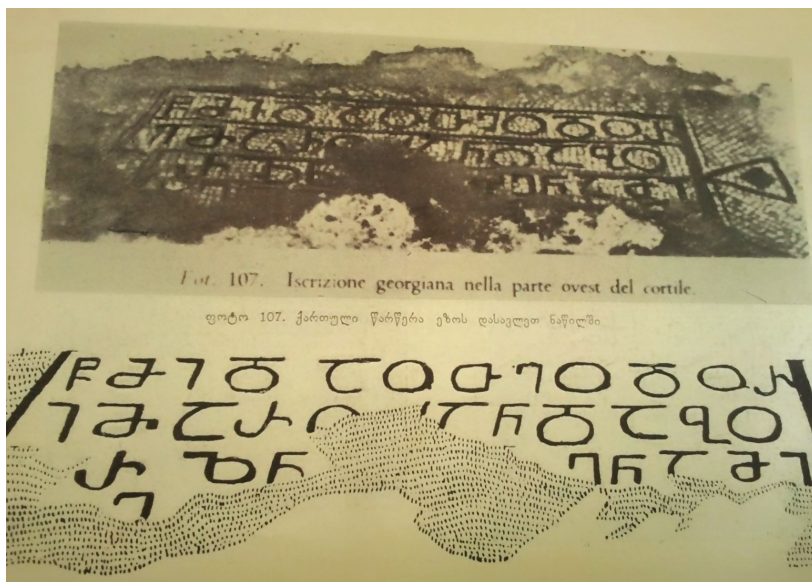 Fot. 107. Iscrizione georgiana nella parte ovest del cortile.
ფოტო 107. ქართული წარწერა ეზოს დასავლეთ ნაწილში
ႼႫႨႣႠႭႧႤႭႣႭႰ
ႤႫႠႰႭ ႠႬႣႠႡႭ
ႰႦႬ ႤႬႠႫႤ